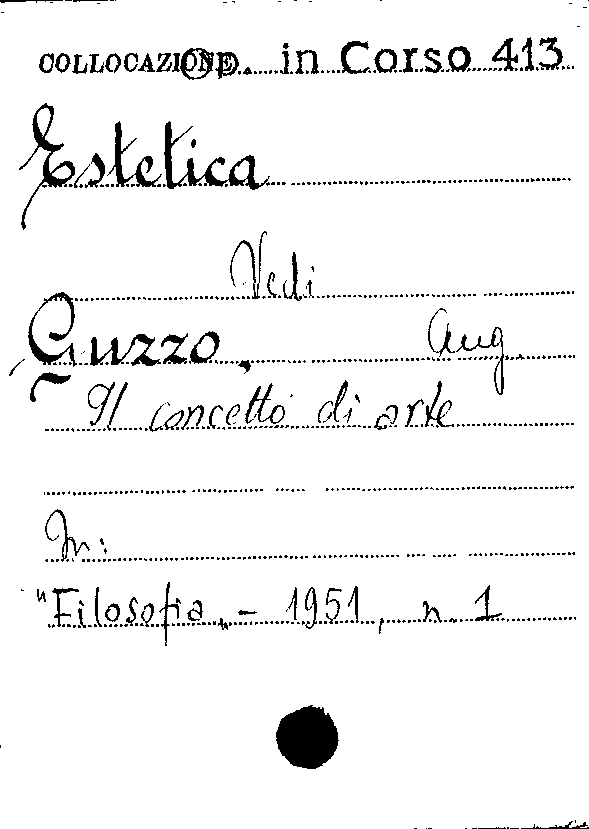 COLLOCAZIONE Op. in Corso 413
Estetica
Vedi
Guzzo, Aug.
Il concetto di arte
In:
"Filosofia" - 1951, n. 1